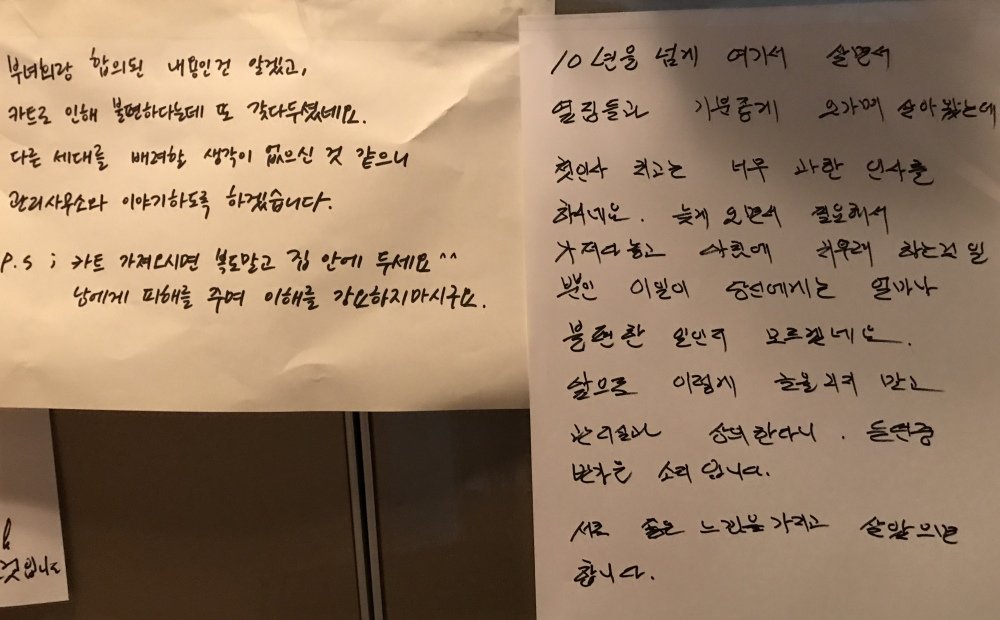 부녀회랑 합의된 내용인건 알겠고,
카트로 인해 불편하다는데 또 갖다두셨네요.
다른 세대를 배려할 생각이 없으신 것 같으니
관리사무소와 이야기하도록 하겠습니다.
P.S ; 카트 가져오시면 복도말고 집 안에 두세요^^
남에게 피해를 주며 이해를 강요하지마시구요.
10년을 넘게 여기서 살면서
옆집들과 기분좋게 오가며 살아왔는데
첫인사 치고는 너무 과한 인사를
하시네요. 늦게 오면서 필요해서
가져다 놓고 아침에 치우려 하는건 일
뿐인 이일이 당신에게는 얼마나
불편한 일인지 모르겠네요.
앞으로 이렇게 하지 말고
관리실과 상의한다니.
반가운 소리입니다.
서로 좋은 느낌을 가지고 살았으면
합니다.
것입니다